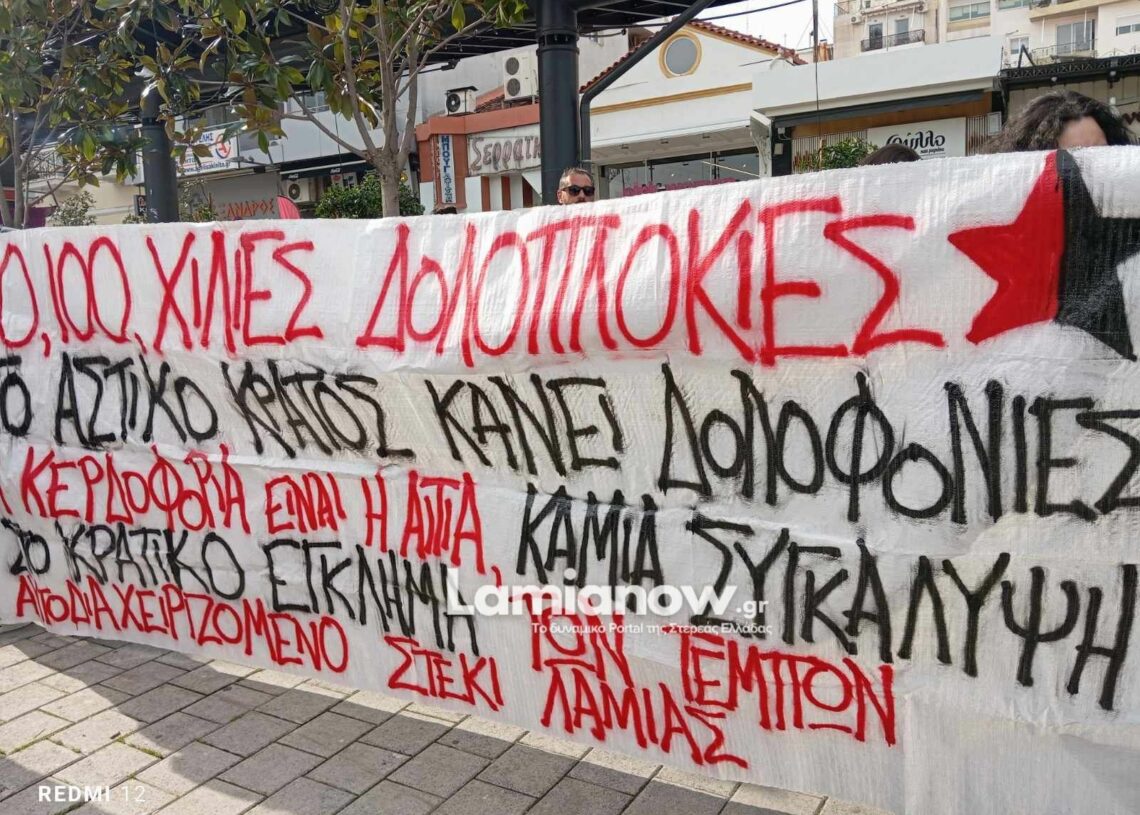 ΣΕΡΡΑΪΚ
φύλλο
ΞΑΝΔΡΟΣ
0, 100, ΧΙΛΙΕΣ ΔΟΛΟΠΛΟΚΙΕΣ
ΤΟ ΑΣΤΙΚΟ ΚΡΑΤΟΣ ΚΑΝΕΙ ΔΟΛΟΦΟΝΙΕΣ
Η ΚΕΡΔΟΦΟΡΙΑ ΕΙΝΑΙ Η ΑΙΤΙΑ, ΚΑΜΙΑ ΣΥΓΚΑΛΥΨΗ
ΣΤΟ ΚΡΑΤΙΚΟ ΕΓΚΛΗΜΑ ΤΩΝ ΤΕΜΠΩΝ
ΑΥΤΟΔΙΑΧΕΙΡΙΖΟΜΕΝΟ ΣΤΕΚΙ ΛΑΜΙΑΣ
Lamianow.gr
Το δυναμικό Portal της Στερεάς Ελλάδας
REDMI 12